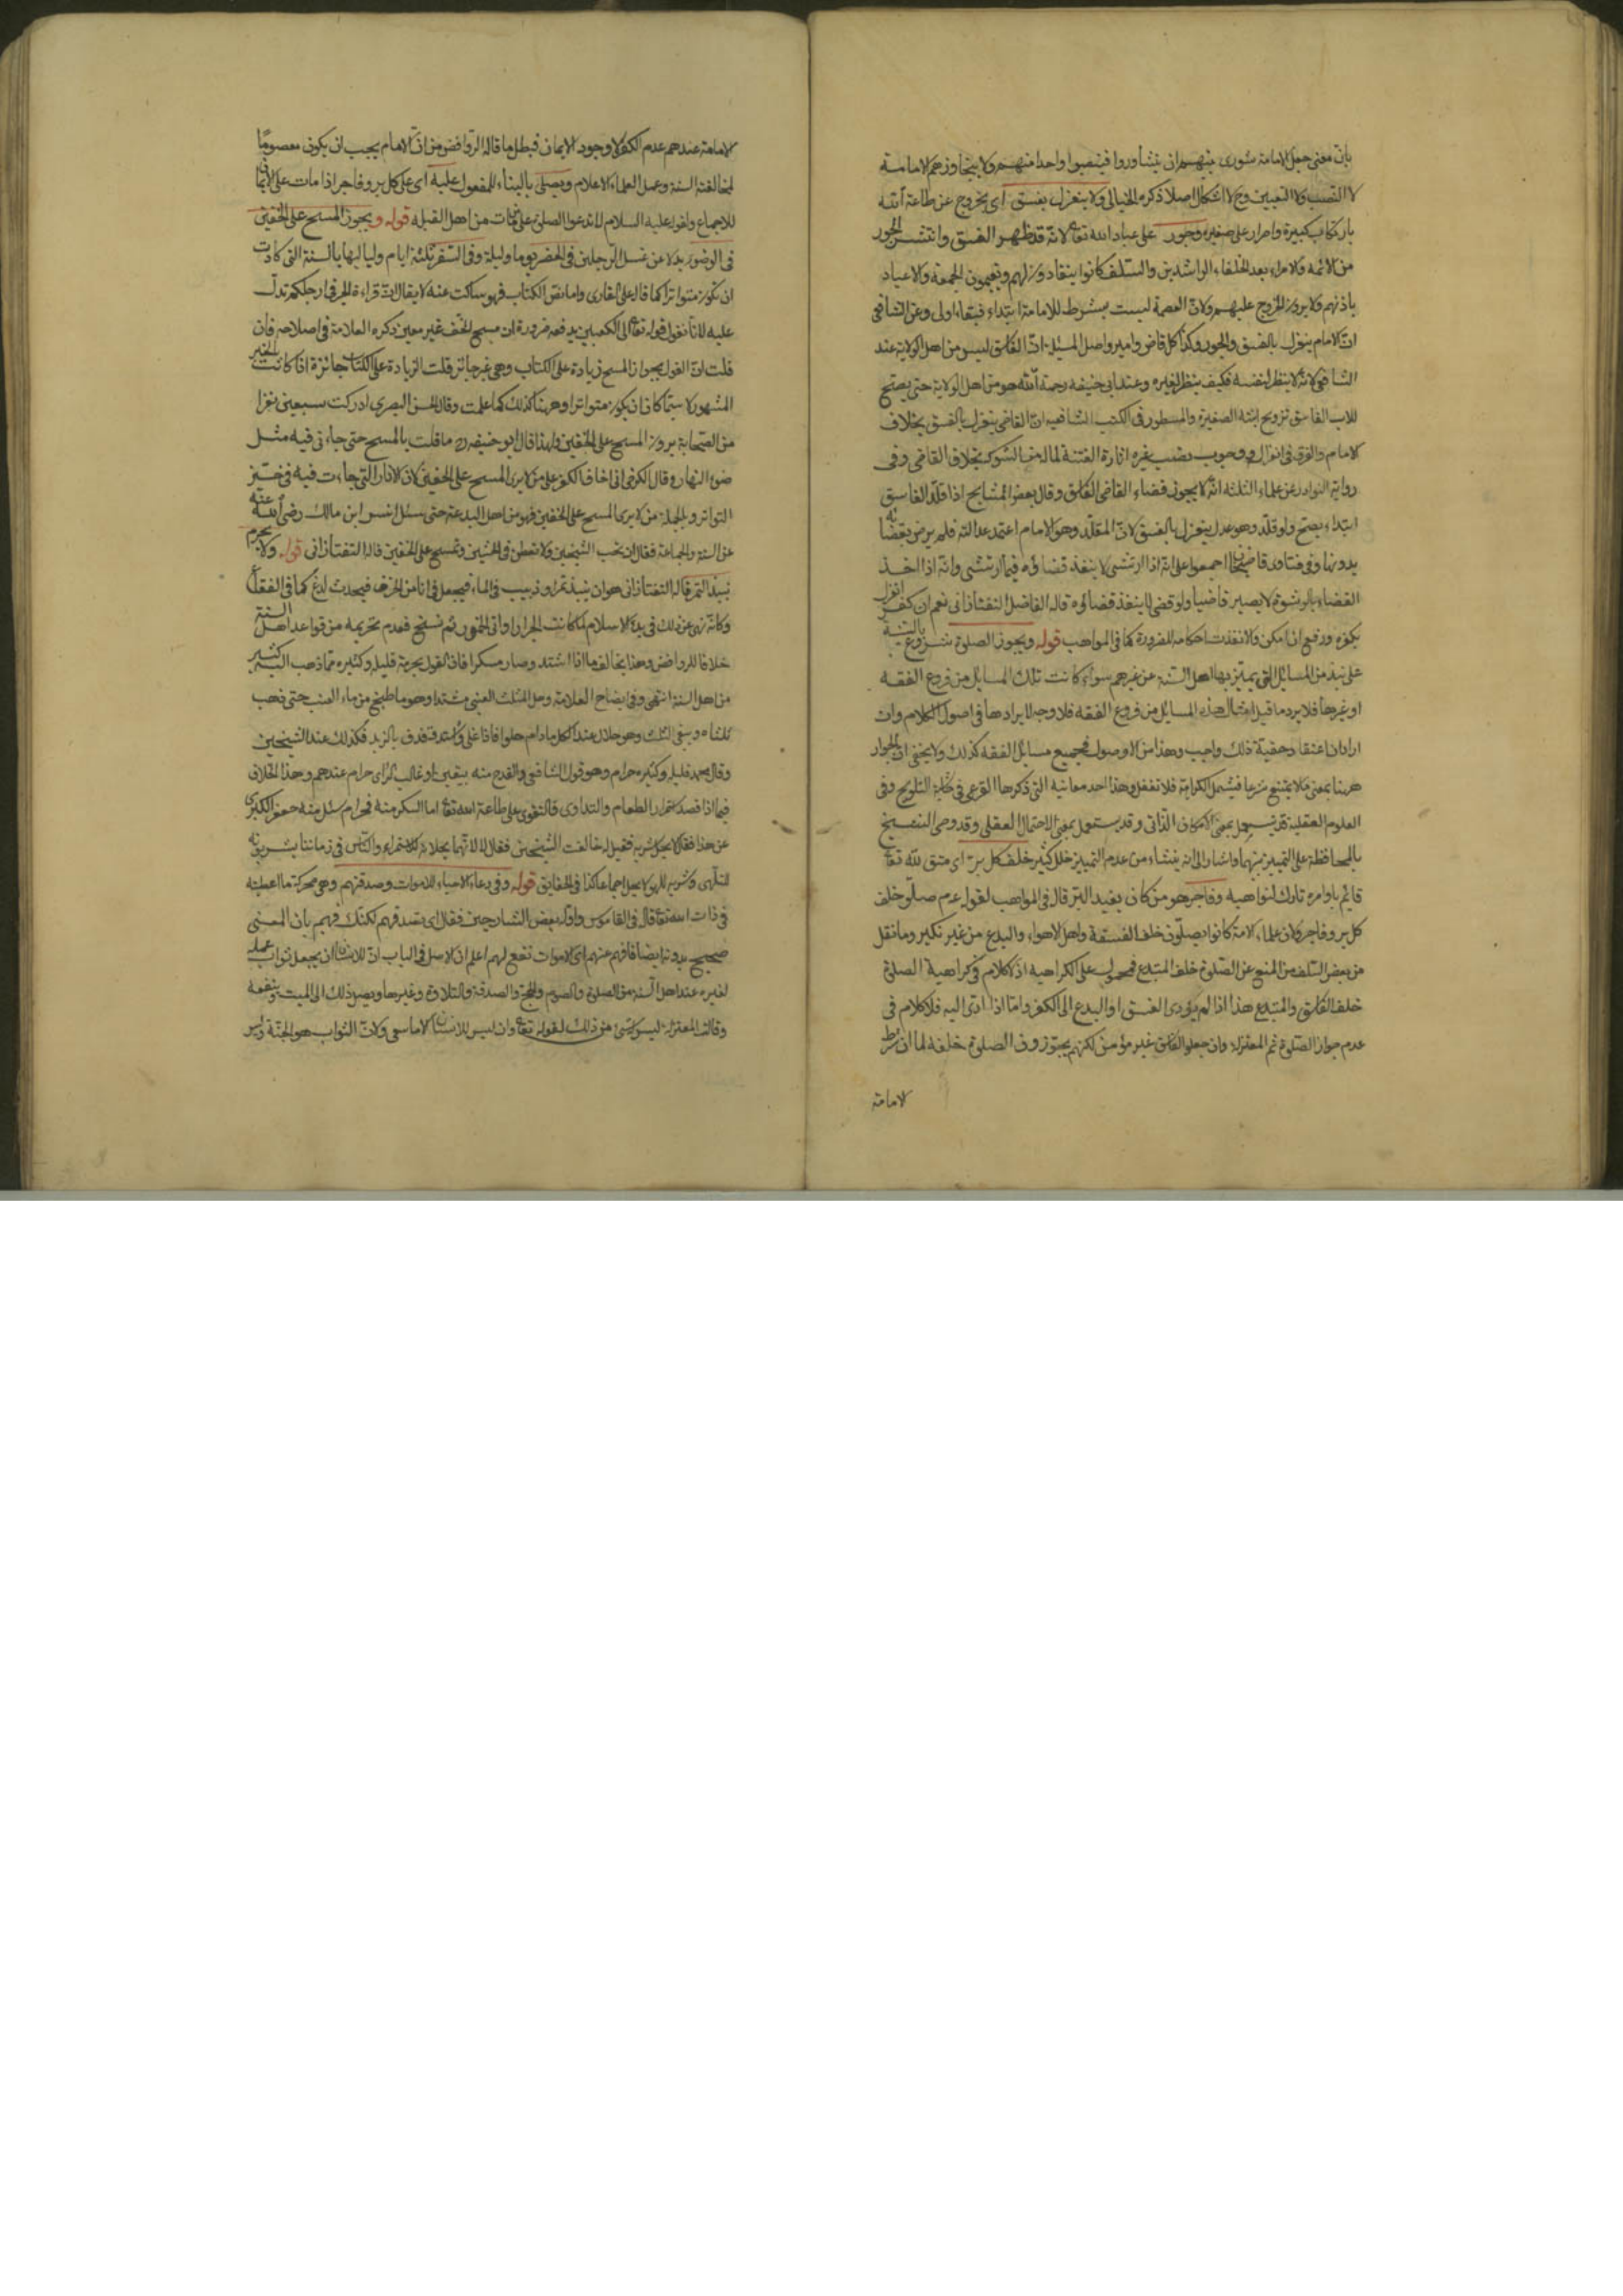 بان معنى جعل الامامة شورى بينهم ان يتشاوروا فينصبوا واحدا منهم ولا يتجاوزهم الامامة
لا النصب ولا التعيين وح لا اشكال اصلا ذكره الخيالى ولا ينعزل بفسق اى بخروج عن طاعة الله
بارتكاب كبيرة واصرار على صغيرة وجور على عباد الله تعا لانه قد ظهر الفسق وانتشر الجور
من الائمة والامراء بعد الخلفاء الراشدين والسلف كانوا ينقادون لهم ويقيمون الجمعة والاعياد
باذنهم ولا يرون الخروج عليهم ولان العصمة ليست بشرط للامامة ابتداء فبقاء اولى وعن الشافعى
ان الامام ينعزل بالفسق والجور وكذا كل قاض وامير واصل المسئلة ان الفاسق ليس من اهل الولاية عند
الشافعى لانه لا ينظر لنفسه فكيف ينظر لغيره وعند ابى حنيفة رحمه الله هو من اهل الولاية حتى يصح
للاب الفاسق تزويج ابنته الصغيرة والمسطور فى الكتب الشافعية ان القاضى ينعزل بالفسق بخلاف
الامام والفرق ان فى انعزاله ووجوب نصب غيره اثارة الفتنة لما له من الشوكة بخلاف القاضى وفى
رواية النوادر عن علماء الثلثة انه لا يجوز قضاء القاضى الفاسق وقال بعض المشايخ اذا قلد الفاسق
ابتداء يصح ولو قلد وهو عدل ينعزل بالفسق لان المقلد وهو الامام اعتمد عدالته فلم يرض بقضائه
بدونها وفى فتاوى قاضيخان اجمعوا على انه اذا ارتشى لا ينفذ قضاؤه فيما ارتشى وانه اذا اخذ
القضاء بالرشوة لا يصير قاضيا ولو قضى لا ينفذ قضاؤه قاله الفاضل التفتازانى نعم ان كفر انعزل
بكفره ورفع ان امكن والا نفذت احكامه للضرورة كما فى المواهب قوله ويجوز الصلوة شروع
على نبذ من المسائل التى يميز بها اهل السنة عن غيرهم سواء كانت تلك المسايل من فروع الفقه
او غيرها فلا يرد ما قيل امثال هذه المسايل من فروع الفقه فلا وجه لايرادها فى اصول الكلام وان
اراد ان اعتقاد حقية ذلك واجب وهذا من الاصول فجميع مسايل الفقه كذلك ولا يخفى ان الجواز
ههنا بمعنى ما لا يمتنع شرعا فيشمل الكراهة فلا تغفل وهذا احد معانيه التى ذكرها فى التلويح وفى
العلوم العقلية قد يستعمل بمعنى الامكان الذاتى وقد يستعمل بمعنى الاحتمال العقلى وقد وصى الشيخ
بالمحافظة على التمييز بينهما واشار الى انه ينشاء من عدم التمييز خلل كثير خلف كل بر اى متق لله تعا
قايم باوامره تارك لنواهيه وفاجر هو من كان بقيد البر قال فى المواهب لقوله عم صلو خلف
كل بر وفاجر ولان علماء الامة كانوا يصلون خلف الفسقة واهل الاهواء والبدع من غير نكير وما نقل
من بعض السلف من المنع عن الصلوة خلف المبتدع فمحمول على الكراهية اذ لا كلام فى كراهية الصلوة
خلف الفاسق والمبتدع هذا اذا لم يؤدى الفسق او البدع الى الكفر واما اذا ادى اليه فلا كلام فى
عدم جواز الصلوة ثم المعتزلة وان جعلوا الفاسق غير مؤمن لكنهم يجوزون الصلوة خلفه لما ان شرط
الامامة
الامامة عندهم عدم الكفر لا وجود الايمان فبطل ما قاله الروافض من ان الامام يجب ان يكون معصوما
لمخالفة السنة وعمل العلماء الاعلام ويصلى بالبناء للمفعول عليه اى على كل بر وفاجر اذا مات على الايمان
للاجماع ولقوله عليه السلام لا تدعوا الصلوة على من مات من اهل القبلة قوله ويجوز المسح على الخفين
فى الوضوء بدلا عن غسل الرجلين فى الحضر يوما وليلة وفى السفر ثلثة ايام ولياليها بالسنة التى كادت
ان تكون متواترا كما قاله على القارى واما نص الكتاب فهو ساكت عنه لا يقال ان قراءة الجر فى ارجلكم تدل
عليه لانا نقول قوله تعا الى الكعبين يدفعه ضرورة ان مسح الخف غير معين ذكره العلامة فى اصلاحه فان
قلت ان القول بجواز المسح زيادة على الكتاب وهى غير جائز قلت الزيادة على الكتاب جائزة اذا كانت بالخبر
المشهور لا سيما كاد ان يكون متواترا وههنا كذلك كما علمت وقال الحسن البصرى ادركت سبعين نفرا
من الصحابة يرون المسح على الخفين ولهذا قال ابو حنيفة ره ما قلت بالمسح حتى جاءنى فيه مثل
ضوء النهار وقال الكرخى انى اخاف الكفر على من لا يرى المسح على الخفين لان الاثار التى جاءت فيه فى حيز
التواتر وبالجملة من لا يرى المسح على الخفين فهو من اهل البدعة حتى سئل انس ابن مالك رضى الله عنه
عن السنة والجماعة فقال ان تحب الشيخين ولا تطعن فى الختنين وتمسح على الخفين قاله التفتازانى قوله ولا يحرم
نبيذ التمر قاله التفتازانى هو ان ينبذ تمر او زبيب فى الماء فيجعل فى اناء من الخزف فيحدث لدغ كما فى الفقاع
وكانه نهى عن ذلك فى بدء الاسلام لما كانت الجرار اوانى الخمور ثم نسخ فعدم تحريمه من قواعد اهل السنة
خلافا للروافض وهذا بخلاف ما اذا اشتد وصار مسكرا فان القول بحرمة قليله وكثيره مما ذهب اليه كثير
من اهل السنة انتهى وفى ايضاح العلامة وحل المثلث العنبى مشتدا وهو ما طبخ من ماء العنب حتى ذهب
ثلثاه ويبقى الثلث وهو حلال عند الكل ما دام حلوا فاذا غلى واشتد وقذف بالزبد فكذلك عند الشيخين
وقال محمد قليله وكثيره حرام وهو قول الشافعى والقدح منه بيقين او غالب الراى حرام عندهم وهذا الخلاف
فيما اذا قصد استمراء الطعام والتداوى والتقوى على طاعة الله تعا اما السكر منه فحرام سئل منه حفص الكبير
عن هذا فقال لا يحل شربه فقيل له خالفت الشيخين فقال لا لانهما يحلانه للاستمراء والناس فى زماننا يشربونه
للتلهى وشربه للهو لا يحل اجماعا كذا فى الحقايق قوله وفى دعاء الاحياء للاموات وصدقتهم وهى محركة ما اعطيته
فى ذات الله تعا قاله فى القاموس واوله بعض الشارحين فقال اى بصدقتهم لكنك فهيم بان المعنى
صحيح بدونه ايضا فافهم عنهم اى الاموات نفع لهم اعلم ان الاصل فى الباب ان للانسان ان يجعل ثواب عمله
لغيره عند اهل السنة من الصلوة والصوم والحج والصدقة والتلاوة وغيرها ويصل ذلك الى الميت وينفعه
وقالت المعتزلة ليس له شئ من ذلك لقوله تعا وان ليس للانسان الا ما سعى ولان الثواب هو الجنة وليس